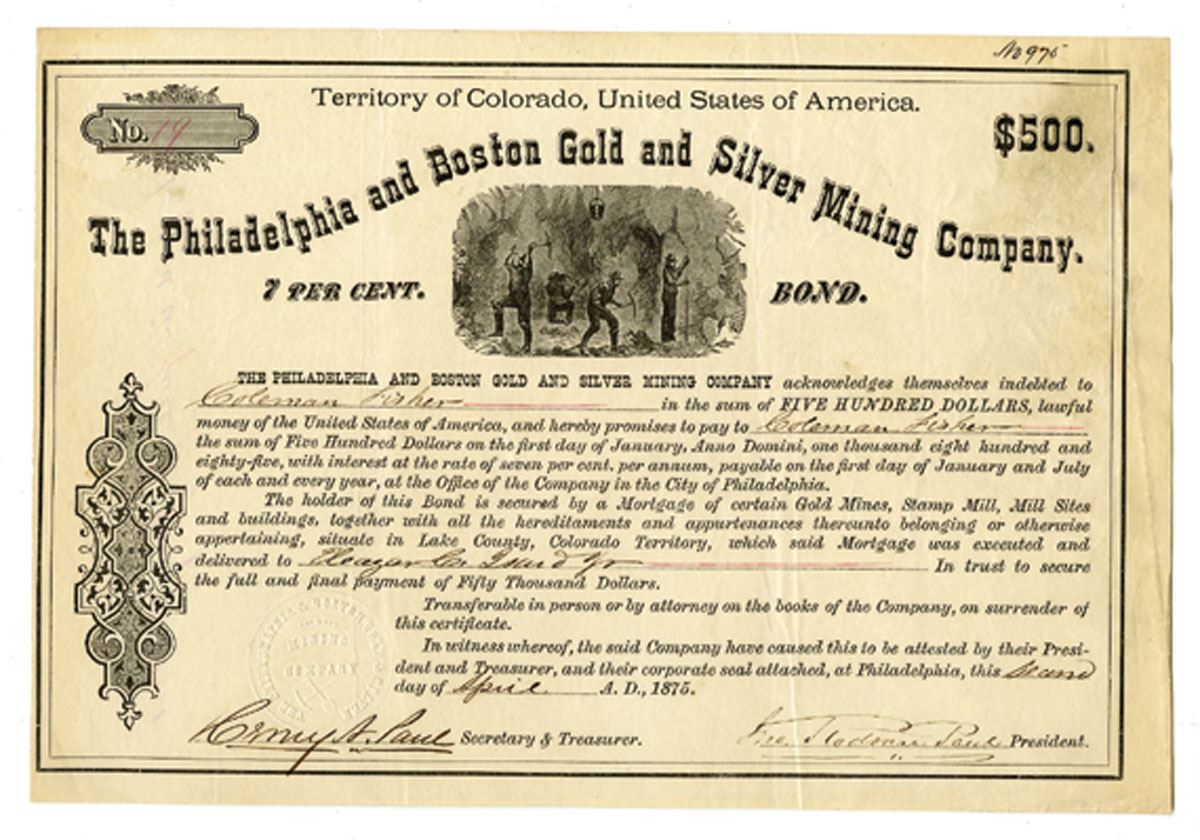 No 975
Territory of Colorado, United States of America.
No. 19
$500.
The Philadelphia and Boston Gold and Silver Mining Company.
7 PER CENT. BOND.
THE PHILADELPHIA AND BOSTON GOLD AND SILVER MINING COMPANY acknowledges themselves indebted to
Coleman Fisher in the sum of FIVE HUNDRED DOLLARS, lawful
money of the United States of America, and hereby promises to pay to Coleman Fisher
the sum of Five Hundred Dollars on the first day of January, Anno Domini, one thousand eight hundred and
eighty-five, with interest at the rate of seven per cent. per annum, payable on the first day of January and July
of each and every year, at the Office of the Company in the City of Philadelphia.
The holder of this Bond is secured by a Mortgage of certain Gold Mines, Stamp Mill, Mill Sites
and buildings, together with all the hereditaments and appurtenances thereunto belonging or otherwise
appertaining, situate in Lake County, Colorado Territory, which said Mortgage was executed and
delivered to Jr In trust to secure
the full and final payment of Fifty Thousand Dollars.
Transferable in person or by attorney on the books of the Company, on surrender of
this certificate.
In witness whereof, the said Company have caused this to be attested by their Presi-
dent and Treasurer, and their corporate seal attached, at Philadelphia, this second
day of April A. D., 1875.
Paul Secretary & Treasurer.
Paul President.